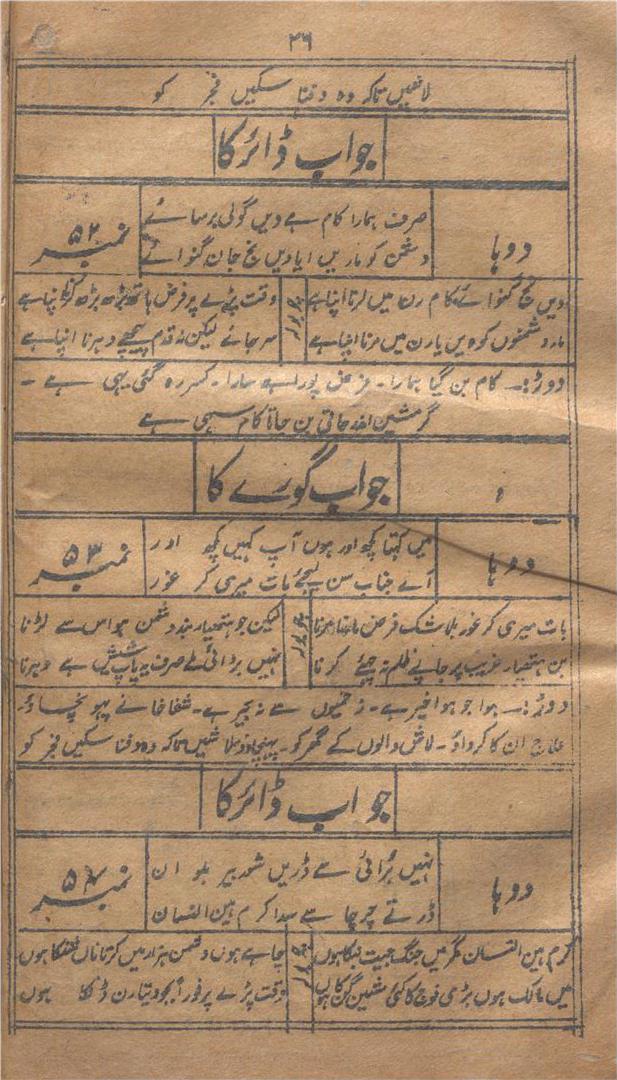 ۳۶
لاشیں تاکہ وہ دفنا سکیں فجر کو
جواب ڈائر کا
دوہا
صرف ہمارا کام ہے دیں گولی برسائے
دشمن کو ماریں یا دیں نج جان گنوائے
نمبر ۵۲
دیں نج گنوائے کام رن میں لڑنا اپنا ہے
وقت پڑے پر فرض ہاتھ بڑھ بڑھ اپنا ہے
مار دشمنوں کو دیں یا رن میں مرنا اپنا ہے
سر جائے لیکن نہ قدم پیچھے دھرنا اپنا ہے
دوڑ:۔ کام بن گیا ہمارا۔ فرض پورا ہے سارا۔ کسر رہ گئی یہی ہے ۔
گر مشین آ جاتی بن جاتا کام سہی ہے
جواب گورے کا
دوہا
میں کہتا کچھ اور ہوں آپ کہیں کچھ اور
اے جناب سن لیجئے بات میری کر غور
نمبر ۵۳
بات میری کر غور بلا شک فرض مارنا مرنا
لیکن جو ہتھیار بند دشمن ہو اس سے لڑنا
بن ہتھیار غریب پر چاہے ظلم نہ چاہئے کرنا
نہیں بڑائی ملے صرف یہ پاپ شیش پے دھرنا
دوڑ:۔ ہوا جو ہوا خیر ہے۔ زخمیوں سے نہ بیر ہے۔ شفا خانے پہونچاؤ۔
علاج ان کا کرواؤ۔ لاش والوں کے گھر کو۔ پہنچا دو لاشیں تاکہ وہ دفنا سکیں فجر کو
جواب ڈائر کا
دوہا
نہیں بُرائی سے ڈریں شور بیر بلوان
ڈرتے چرچا سے سدا کرم ہین انسان
نمبر ۵۴
کرم ہین انسان مگر میں جنگ جیت کا ہوں
چاہے ہوں دشمن ہزار میں کرتا ناں ہوں
میں مالک ہوں بڑی فوج کا کئی مشین گن کا ہوں
وقت پڑے پر فوراً بجو دیتا رن ڈنکا ہوں